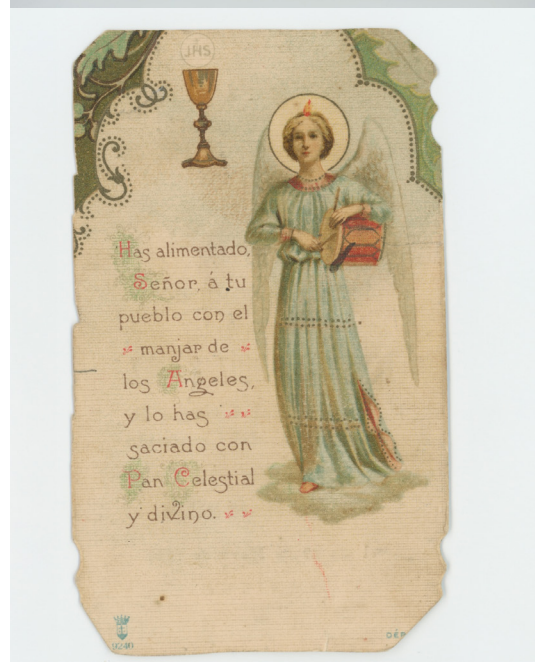 JHS
Has alimentado,
Señor, á tu
pueblo con el
manjar de
los Angeles,
y lo has
saciado con
Pan Celestial
y divino.
9240
DÉP